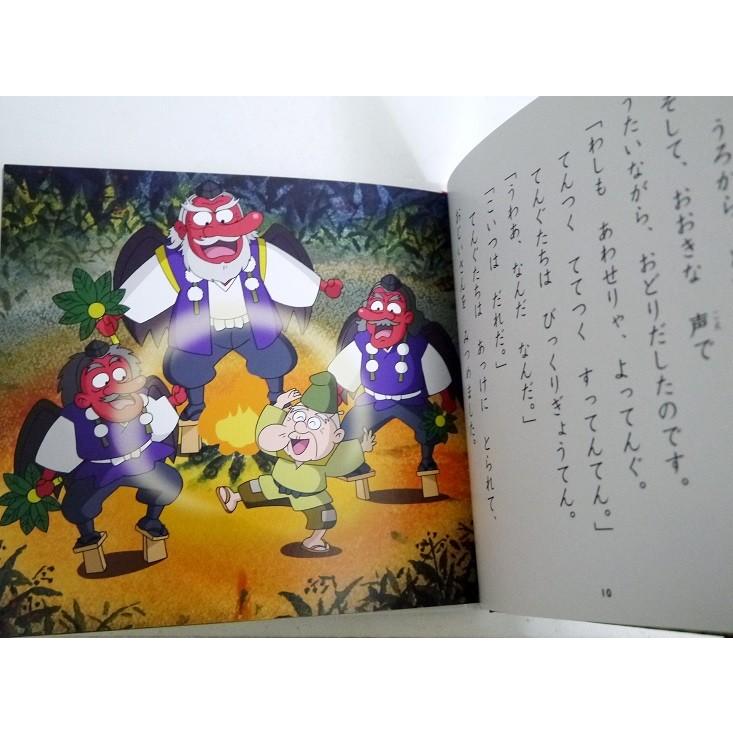 うろから
そして、おおきな 声で
こえ
うたいながら、おどりだしたのです。
「わしも あわせりゃ、よってんぐ。
てんつく ててつく すってんてん。」
てんぐたちは びっくりぎょうてん。
「うわあ、なんだ なんだ。」
「こいつは だれだ。」
てんぐたちは あっけに とられて、
おじいさんを みつめました。
10